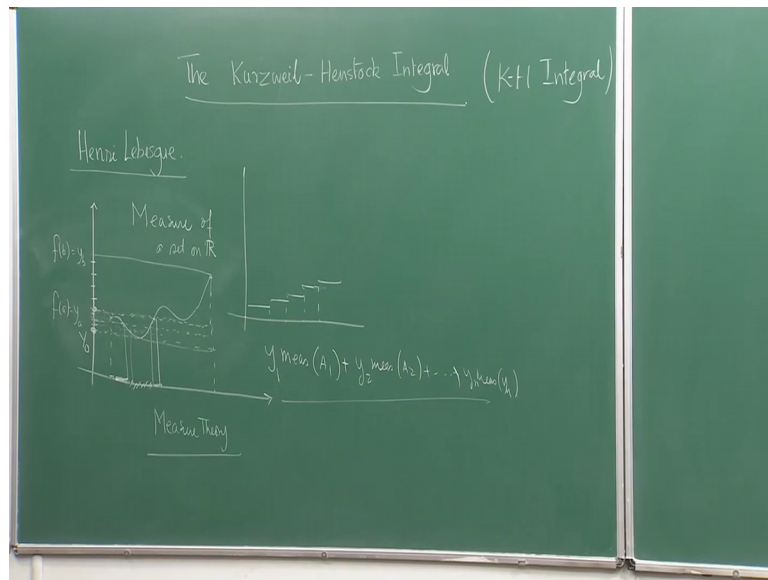 The Kurzweil-Henstock Integral (K-H Integral)
Henri Lebesgue.
Measure of
a set on ℝ
f(b)=y
f(a)=y
y₀
y₁ meas(A₁) + y₂ meas(A₂) + ... + yₙ meas(yₙ)
Measure Theory